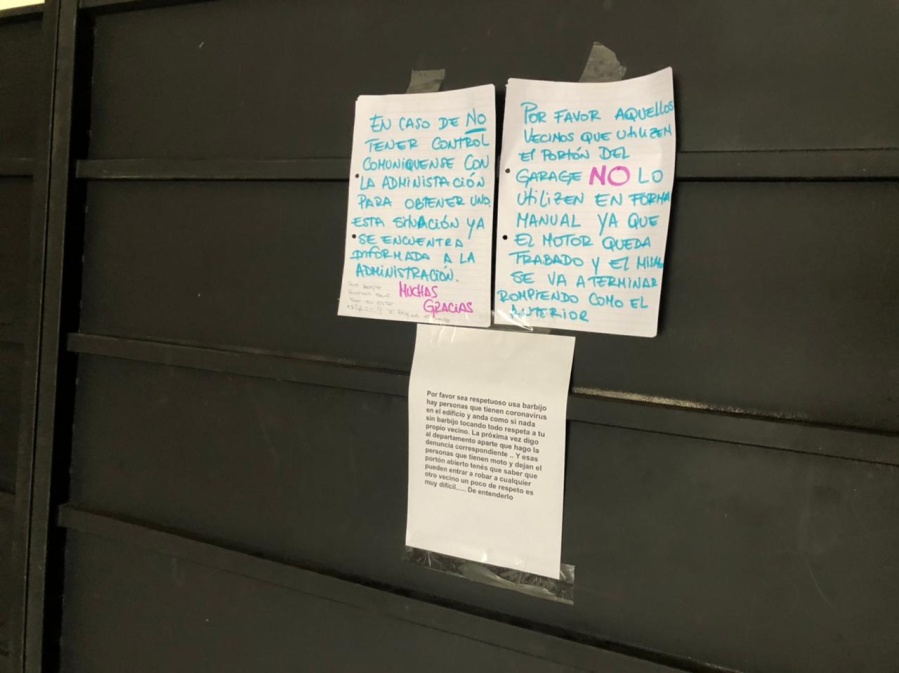 EN CASO DE NO
TENER CONTROL
COMUNIQUENSE CON
LA ADMINISTACIÓN
PARA OBTENER UNO.
ESTA SITUACIÓN YA
SE ENCUENTRA
INFORMADA A LA
ADMINISTRACIÓN.
MUCHAS
GRACIAS
POR FAVOR AQUELLOS
VECINOS QUE UTILIZEN
El PORTÓN DEL
GARAGE NO LO
UTILIZEN EN FORMA
MANUAL YA QUE
EL MOTOR QUEDA
TRABADO Y EL MISMO
SE VA A TERMINAR
ROMPIENDO COMO EL
ANTERIOR
Por favor sea respetuoso usa barbijo
hay personas que tienen coronavirus
en el edificio y anda como si nada
sin barbijo tocando todo respeta a tu
propio vecino. La próxima vez digo
el departamento aparte que hago la
denuncia correspondiente .. Y esas
personas que tienen moto y dejan el
portón abierto tenés que saber que
pueden entrar a robar a cualquier
otro vecino un poco de respeto es
muy difícil..... De entenderlo